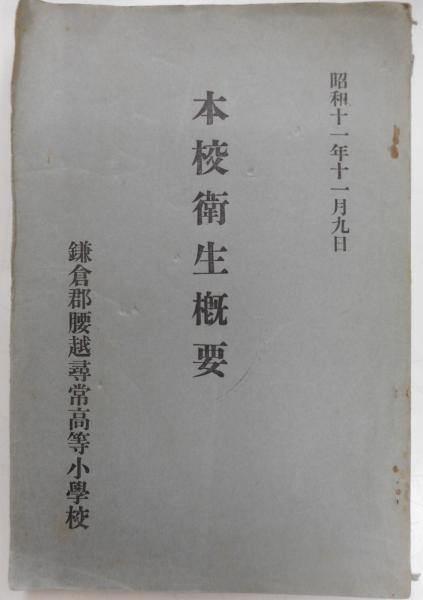 昭和十一年十一月九日
本校衛生概要
鎌倉郡腰越尋常高等小學校